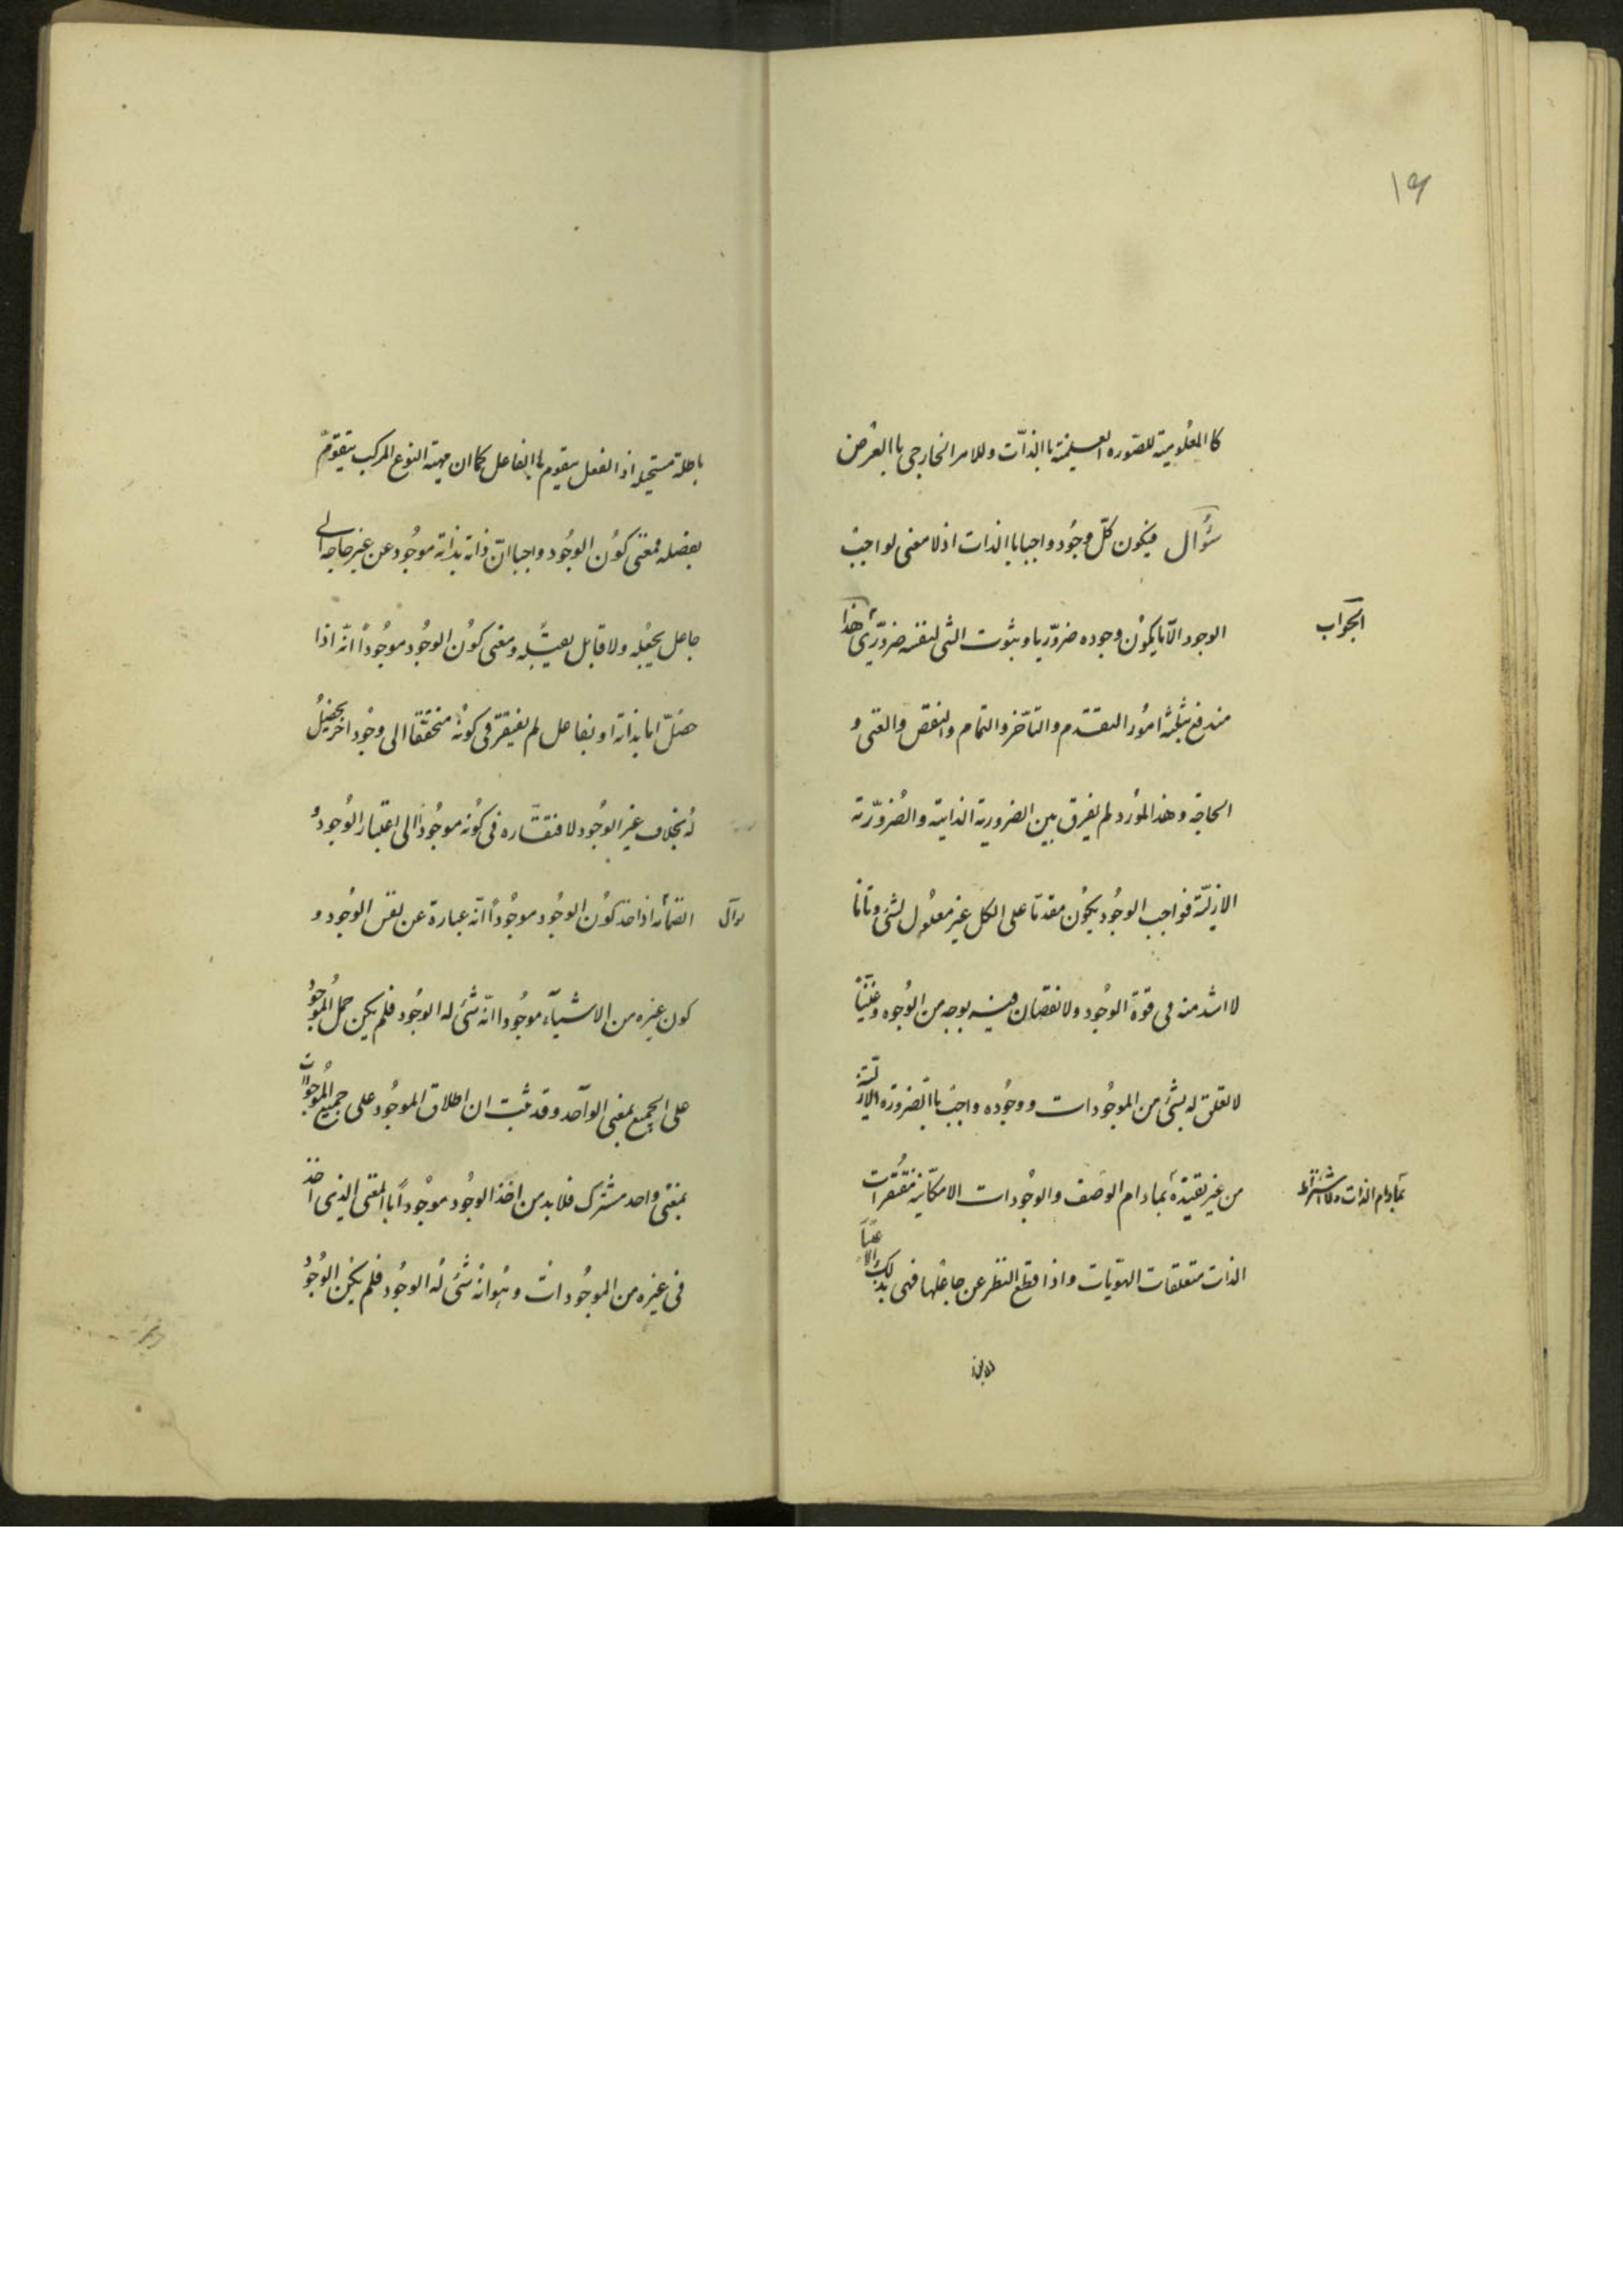 ١٩
كالمعلومية للصورة العلمية باالذّات وللامر الخارجي باالعرض
سؤال فيكون كلّ وجود واجبا باالذات اذ لا معنى لواجب
الوجود الّا ما يكون وجوده ضروريا وثبوت الشئ لنفسه ضروريّ هذا
الجواب
مندفع بثلثة امور التقدم والتأخر والتمام والنقص والغنى و
الحاجة وهذا المورد لم يفرق بين الضرورية الذاتية والضرورّية
الازليّة فواجب الوجود يكون مقدما على الكل غير معلول لشئ وتاما
لا اشد منه فى قوة الوجود ولا نقصان فيه بوجه من الوجوه وغنيّاً
لا تعلق له بشئ من الموجودات ووجوده واجب باالضرورة الازلية
من غير تقيده بمادام الوصف والوجودات الامكانية مفتقرات
بمادام الذات ولا اشتراط
الذات متعلقات الهوّيات واذا قطع النظر عن جاعلها فهى بذلك الاعتبار
باطلة مستحيلة اذ الفعل يتقوم باالفاعل كما ان مهية النوع المركب يتقوّم
بفصله فمعنى كون الوجود واجبا انّ ذاته بذاته موجود عن غير حاجة الى
جاعل يجعله ولا قابل يقبله ومعنى كون الوجود موجوداً انّه اذا
حصلّ اما بذاته او بفاعل لم يفتقر فى كونه متحققا الى وجود اخر يحصل
له بخلاف غير الوجود لافتقاره فى كونه موجوداً الى اعتبار الوجود و
انضمامه اذا اخذ كون الوجود موجوداً انّه عبارة عن نفس الوجود و
كون غيره من الاشيآء موجودا انّه شئ له الوجود فلم يكن حمل الموجود
على الجميع بمعنى الواحد وقد ثبت ان اطلاق الموجود على جميع الموجودات
بمعنى واحد مشترك فلا بد من اخذ الوجود موجوداً باالمعنى الذى اخذ
فى غيره من الموجودات وهو انه شئ له الوجود فلم يكن الوجود